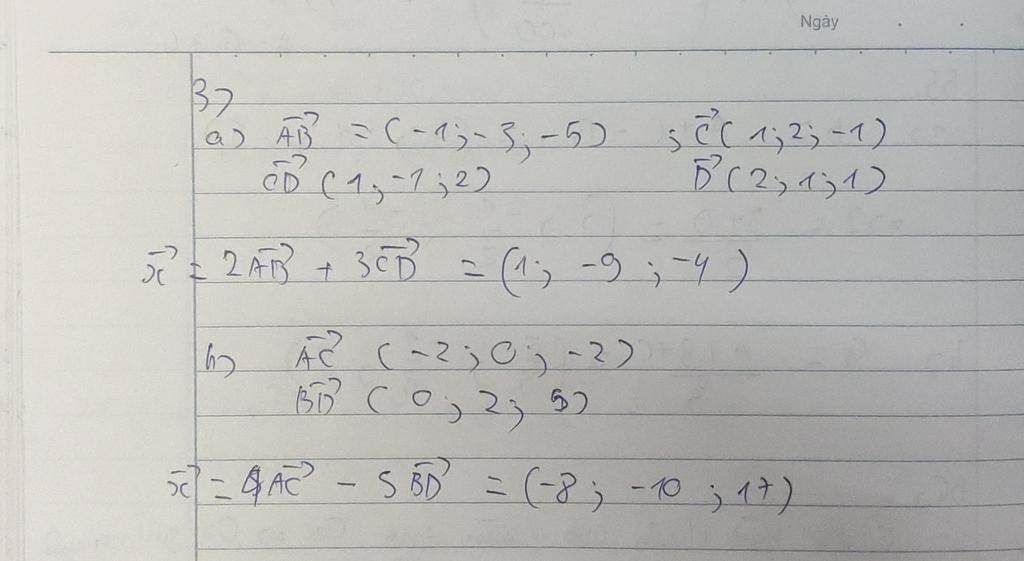 Ngày
3)
a) AB⃗ = (-1; -3; -5) ; C⃗(1; 2; -1)
CD⃗ (1; -1; 2) D⃗(2; 1; 1)
x⃗ = 2AB⃗ + 3CD⃗ = (1; -9; -4)
b) AC⃗ (-2; 0; -2)
BD⃗ (0; 2; 5)
x⃗ = 4AC⃗ - 5BD⃗ = (-8; -10; 17)